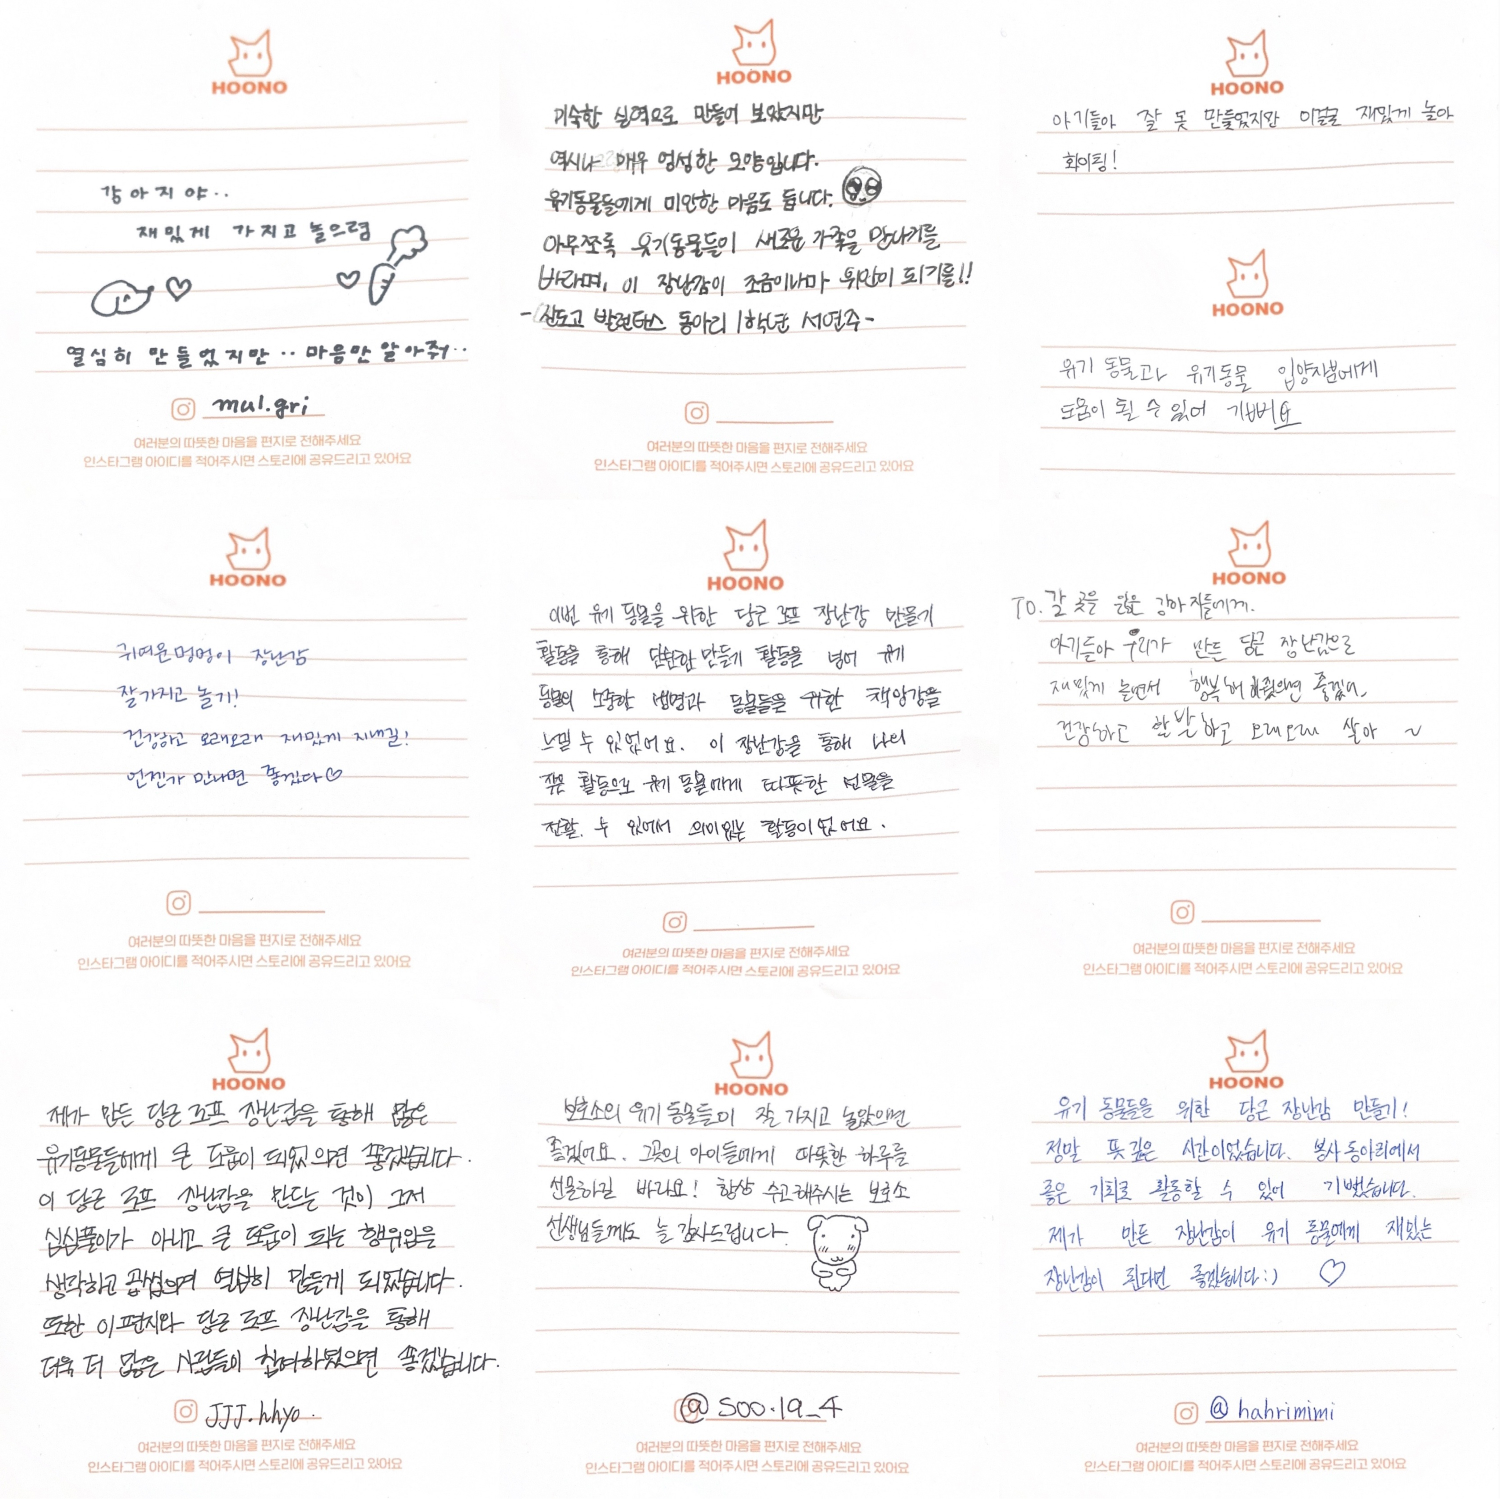 HOONO
강아지야..
재밌게 가지고 놀으렴
열심히 만들었지만.. 마음만 알아줘..
mul.gri
여러분의 따뜻한 마음을 편지로 전해주세요
인스타그램 아이디를 적어주시면 스토리에 공유드리고 있어요
HOONO
미숙한 실력으로 만들어 보았지만
역시나 매우 엉성한 모양입니다.
유기동물들에게 미안한 마음도 듭니다.
아무쪼록 유기동물들이 새로운 가족을 만나기를
바라며, 이 장난감이 조금이나마 위안이 되기를!!
- 산도고 발런터스 동아리 1학년 서연주 -
여러분의 따뜻한 마음을 편지로 전해주세요
인스타그램 아이디를 적어주시면 스토리에 공유드리고 있어요
HOONO
아기들아 잘 못 만들었지만 이걸로 재밌게 놀아
화이팅!
HOONO
유기 동물과 유기동물 입양자분에게
도움이 될 수 있어 기뻐요
HOONO
귀여운 멍멍이 장난감
잘가지고 놀기!
건강하고 오래오래 재밌게 지내길!
언젠가 만나면 좋겠다♡
여러분의 따뜻한 마음을 편지로 전해주세요
인스타그램 아이디를 적어주시면 스토리에 공유드리고 있어요
HOONO
이번 유기 동물을 위한 당근 로프 장난감 만들기
활동을 통해 단순한 만들기 활동을 넘어 유기
동물의 소중한 생명과 동물들을 위한 책임감을
느낄 수 있었어요. 이 장난감을 통해 나의
작은 활동으로 유기 동물에게 따뜻한 선물을
전할 수 있어서 의미있는 활동이었어요.
여러분의 따뜻한 마음을 편지로 전해주세요
인스타그램 아이디를 적어주시면 스토리에 공유드리고 있어요
HOONO
TO. 갈 곳을 잃은 강아지들에게.
아기들아 우리가 만든 당근 장난감으로
재밌게 놀면서 행복해졌으면 좋겠어.
건강하고 활발하고 오래오래 살아 ~
여러분의 따뜻한 마음을 편지로 전해주세요
인스타그램 아이디를 적어주시면 스토리에 공유드리고 있어요
HOONO
제가 만든 당근 로프 장난감을 통해 많은
유기동물들에게 큰 도움이 되었으면 좋겠습니다.
이 당근 로프 장난감을 만드는 것이 그저
심심풀이가 아니고 큰 도움이 되는 행위임을
생각하고 곱씹으며 열심히 만들게 되었습니다.
또한 이 편지와 당근 로프 장난감을 통해
더욱 더 많은 사람들이 참여하였으면 좋겠습니다.
JJJ.hhyo.
여러분의 따뜻한 마음을 편지로 전해주세요
인스타그램 아이디를 적어주시면 스토리에 공유드리고 있어요
HOONO
보호소의 유기 동물들이 잘 가지고 놀았으면
좋겠어요. 그곳의 아이들에게 따뜻한 하루를
선물하길 바라요! 항상 수고해주시는 보호소
선생님들께도 늘 감사드립니다.
@ soo.19_4
여러분의 따뜻한 마음을 편지로 전해주세요
인스타그램 아이디를 적어주시면 스토리에 공유드리고 있어요
HOONO
유기 동물들을 위한 당근 장난감 만들기!
정말 뜻 깊은 시간이었습니다. 봉사동아리에서
좋은 기회로 활동할 수 있어 기뻤습니다.
제가 만든 장난감이 유기 동물에게 재밌는
장난감이 된다면 좋겠습니다:) ♡
@ hahrimimi
여러분의 따뜻한 마음을 편지로 전해주세요
인스타그램 아이디를 적어주시면 스토리에 공유드리고 있어요